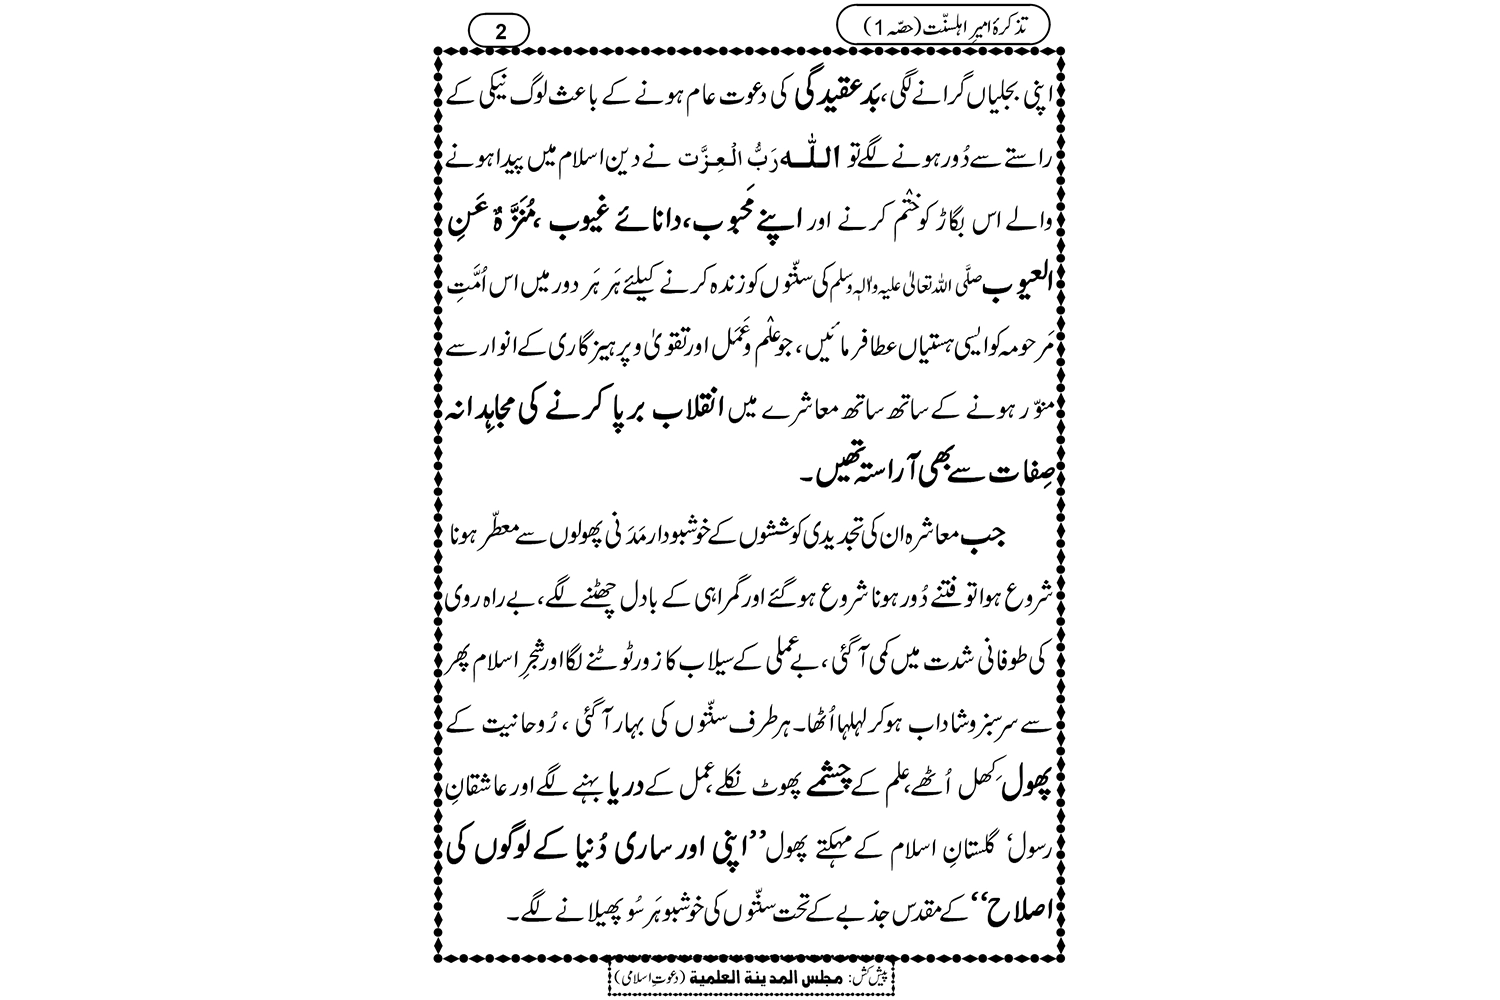 تذکرۂ امیرِ اہلسنّت (حصّہ 1)
2
اپنی بجلیاں گرانے لگی، بَدعقیدگی کی دعوت عام ہونے کے باعث لوگ نیکی کے
راستے سے دُور ہونے لگے تو اللّٰہ رَبُّ الْعِزَّت نے دین اسلام میں پیدا ہونے
والے اس بگاڑ کو خَتْم کرنے اور اپنے مَحبوب، دانائے غیوب، مُنَزَّہٌ عَنِ
العیوب صلَّی اللہ تعالیٰ علیہ واٰلہٖ وسلم کی سنّتوں کو زندہ کرنے کیلئے ہَر ہَر دور میں اس اُمَّتِ
مَرحومہ کو ایسی ہستیاں عطا فرمائیں، جو عِلْم وعَمَل اور تقویٰ و پرہیزگاری کے انوار سے
منوّر ہونے کے ساتھ ساتھ معاشرے میں انقلاب برپا کرنے کی مجاہِدانہ
صِفات سے بھی آراستہ تھیں۔
جب معاشرہ ان کی تجدیدی کوششوں کے خوشبودار مَدَنی پھولوں سے معطّر ہونا
شروع ہوا تو فتنے دُور ہونا شروع ہوگئے اور گمراہی کے بادل چھٹنے لگے، بے راہ روی
کی طوفانی شدت میں کمی آگئی، بے عملی کے سیلاب کا زور ٹوٹنے لگا اور شجرِ اسلام پھر
سے سرسبز و شاداب ہو کر لہلہا اُٹھا۔ ہر طرف سنّتوں کی بہار آگئی، رُوحانیت کے
پھول کِھل اُٹھے، علم کے چشمے پھوٹ نکلے، عمل کے دریا بہنے لگے اور عاشقانِ
رسول گلستانِ اسلام کے مہکتے پھول ’’اپنی اور ساری دُنیا کے لوگوں کی
اصلاح‘‘ کے مقدس جذبے کے تحت سنّتوں کی خوشبو ہَر سُو پھیلانے لگے۔
پیش کش: مجلس المدینة العلمیة (دعوتِ اسلامی)